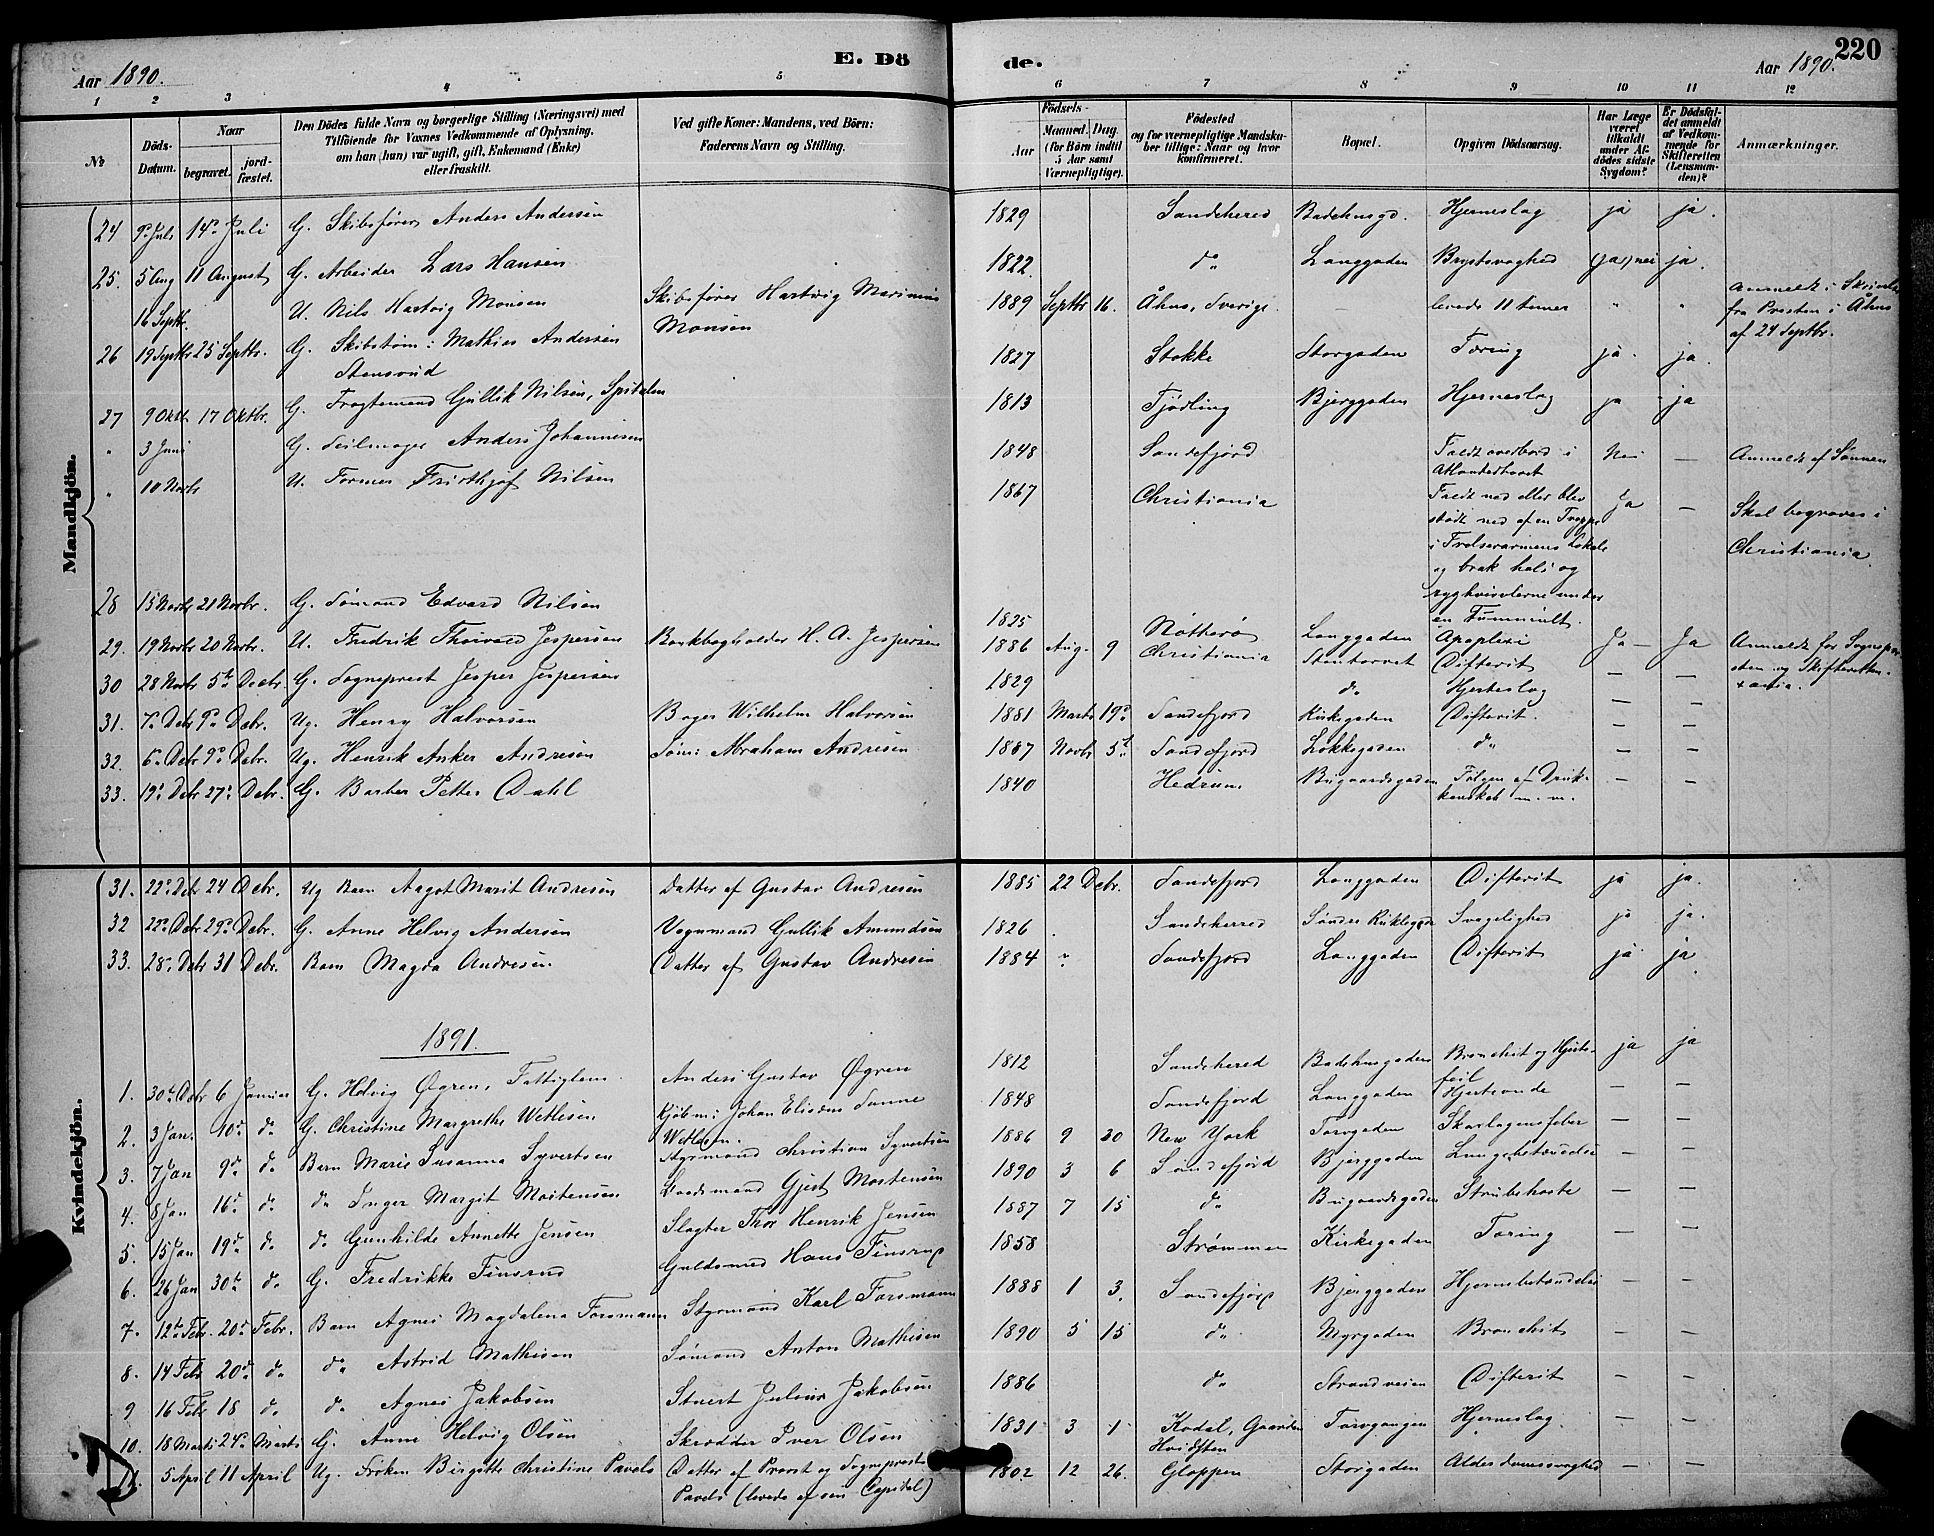 Aar 1890.
E. Dö
de.
Aar 1890.
220
1 2 3 4 5 6 7 8 9 10 11 12
No
Döds-Datum.
Naar
begravet.
jord-fæstet.
Den Dödes fulde Navn og borgerlige Stilling (Næringsvei) med
Tilföiende for Voxnes Vedkommende af Oplysning,
om han (hun) var ugift, gift, Enkemand (Enke)
eller fraskilt.
Ved gifte Koner: Mandens, ved Börn:
Faderens Navn og Stilling.
Födsels-
Aar
Maaned. Dag.
(for Börn indtil
5 Aar samt
Værnepligtige).
Födested
og for værnepligtige Mandska-
ber tillige: Naar og hvor
konfirmeret.
Bopæl.
Opgiven Dödsaarsag.
Har Læge
været
tilkaldt
under Af-
dödes sidste
Sygdom?
Er Dödsfal-
det anmeldt
af Vedkom-
mende for
Skifteretten
(Lensman-
den)?
Anmærkninger.
Mandkjön.
24 9de Juli 14de Juli G. Skibsfører Anders Andersen 1829 Sandeherred Badehusgd. Hjerneslag ja ja.
25. 5 Aug 11 August G. Arbeider Lars Hansen 1822 do Langgaden Brystsvaghed (ja) nei ja.
16 Septbr. U. Nils Hartvig Monsen Skibsfører Hartvig Marinius Monsen 1889 Septbr 16. Åhus, Sverige. levede 11 timer " " Anmeldt i Skrivelse fra Presten i Åhus af 24 Septbr.
26 19 Septbr 25 Septbr. G. Skibstøm: Mathias Andersen Stensrud 1827 Stokke Storgaden Tæring ja ja
27 9 Oktbr 17 Oktbr. G. Fragtemand Gullik Nilsen, Spitalen 1813 Tjødling Bjerggaden Hjerneslag ja ja
" 3 Juni G. Seilmager Anders Johannesen 1848 Sandefjord Faldt overbord i Atlanterhavet Nei — Anmeldt af Sønnen
" 10 Novbr U. Former Fridthjof Nilsen 1867 Christiania Faldt ned eller blev stødt ned af en Trappe i Frelserarmeens Lokale og brak hals og ryghvirvlerne under en Tummult. Ja — Skal begraves i Christiania
28 15 Novbr 21 Novbr. G. Sømand Edvard Nilsen 1825 Nøtterø Langgaden Apoplexi Ja — Ja
29. 19 Novbr 20 Novbr. U. Fredrik Thorvald Jespersen Bankbogholder H. A. Jespersen 1886 Aug. 9 Christiania Stentorvet Difterit — — Anmeldt for Sognepresten og Skifteretten.
30 28 Novbr 5te Decbr. G. Sogneprest Jesper Jespersen 1829 do Hjerteslag — —
31. 7de Debr 9de Debr. Ug. Henry Halvorsen Bager Wilhelm Halvorsen 1881 Marts 19de Sandefjord Kirkegaden Difterit. — —
32. 6te Debr 9de Debr. Ug. Henrik Anker Andresen Søm: Abraham Andresen 1887 Novbr 5te Sandefjord Løkkegaden do — —
33. 19de Debr 27de Debr. G. Barber Petter Dahl 1840 Hedrum. Bugaardsgaden Følgen af Drukkenskab m. m. — —
Kvindekjön.
31. 22de Debr 24 Debr. Ug Barn Aagot Marit Andresen Datter af Gustav Andresen 1885 22 Debr. Sandefjord Langgaden Difterit ja ja.
32 22de Debr 29de Debr. G. Anne Helvig Andersen Vognmand Gullik Amundsen 1826 Sandeherred Søndre Kirkegd Svagelighed ja ja.
33. 28de Debr 31 Debr. Barn Magda Andresen Datter af Gustav Andresen 1884 Sandefjord Langgaden Difterit ja ja
1891.
1. 30te Debr 6 Januar G. Helvig Øgren, Fattiglem Anders Gustav Øgren 1812 Sandeherred Badehusgaden Bronchit og Hjertefeil ja ja
2. 3 Jan. 10de do G. Christine Margrethe Wetlesen Kjøbm: Johan Elisæus Sanne Wetlesen. 1848 Sandefjord Langgaden Hjerteonde — —
3. 7 Jan 9de do Barn Marie Susanna Syvertsen Styrmand Christian Syvertsen 1886 9 30 New York Torvgaden Skarlagensfeber — —
4. 8 Jan 16de do do Inger Margit Mortensen Baadsmand Gjert Mortensen 1890 3 6 Sandefjord Bjerggaden Lungebetændelse — —
5. 15 Jan 19de do do Gunhilde Annette Jensen Slagter Thor Henrik Jensen 1887 7 15 do Bugaardsgaden Strubehoste — —
6. 26 Jan 30te do G. Fredrikke Finsrud Guldsmed Hans Finsrud 1858 Strømmen Kirkegaden Tæring — —
7. 12te Febr. 20de Febr. Barn Agnes Magdalena Forsmann Styrmand Karl Forsmann 1888 1 3. Sandefjord Bjerggaden Hjernebetændelse — —
8. 14 Febr 20de do do Astrid Mathisen Sømand Anton Mathisen 1890 5 15 do Myrgaden Bronchit — —
9 16 Febr 18 do do Agnes Jakobsen Stuert Julius Jakobsen 1886 do Strandveien Difterit — —
10. 18 Marts 24de Marts G. Anne Helvig Olsen Skrædder Iver Olsen 1831 3 1 Kodal, Gaarden Hvidsten Torvgangen Hjerneslag. — —
11. 5 April 11 April Ug. Frøken Birgitte Christine Pavels Datter af Provst og Sogneprest Pavels (levede af sin Capital) 1802 12 26. Gloppen Storgaden Alderdomssvaghed — —